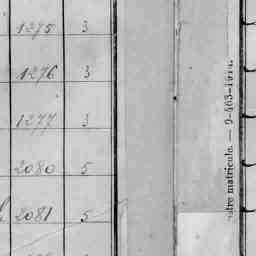 1275 3
1276 3
1277 3
2080 5
2081 5
matricule. — 9-463-1914.